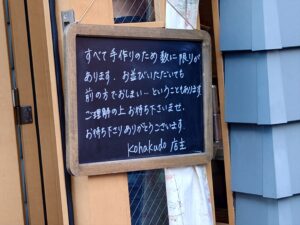 すべて手作りのため数に限りが
あります。お並びいただいても
前の方でおしまい…ということもあります
ご理解の上お待ち下さいませ。
お待ち下さりありがとうございます。
Kohakudo 店主